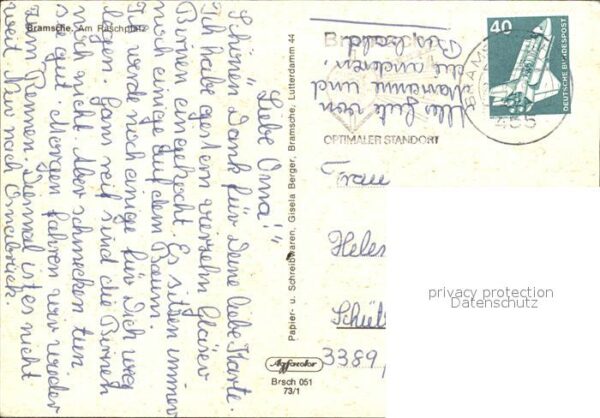 Bramsche. Am Raschplatz
Liebe Oma!
Schönen Dank für Deine liebe Karte.
Ich habe gestern vierzehn Gläser
Birnen eingekocht. Es sitzen immer
noch einige auf dem Baum.
Ich werde noch einige für Dich weg
legen. Ganz reif sind die Birnen
noch nicht. Aber schmecken tun
sie gut. Morgen fahren wir wieder
zum Rennen. Diesmal ist es nicht
weit. Nur nach Osnabrück.
Alles Gute von
Marianne und
die anderen.
Papier- u. Schreibwaren, Gisela Berger, Bramsche, Lutterdamm 44
Agfacolor
Brsch 051
73/1
OPTIMALER STANDORT
40
DEUTSCHE BUNDESPOST
455
Frau
Helen
Schül
3389,
privacy protection
Datenschutz